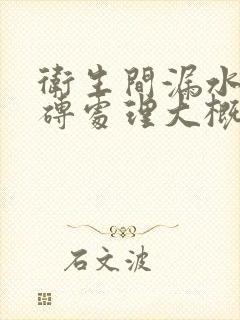 衛生間漏水
磚處理大概
石文波